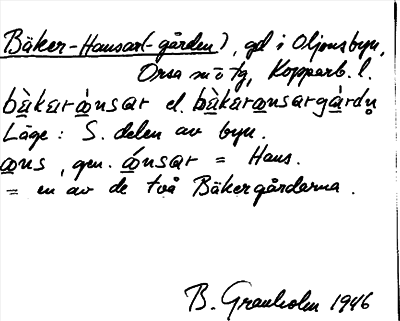 Bäker-Hansar(-gården), gd i Oljonsbyn,
Orsa sn o tg, Kopparb. l.
bä̀karànsar el. bä̀karànsargàrdn̥
Läge: S. delen av byn.
ans, gen. ánsar = Hans.
= en av de två Bäkergårdarna.
B. Granholm 1946